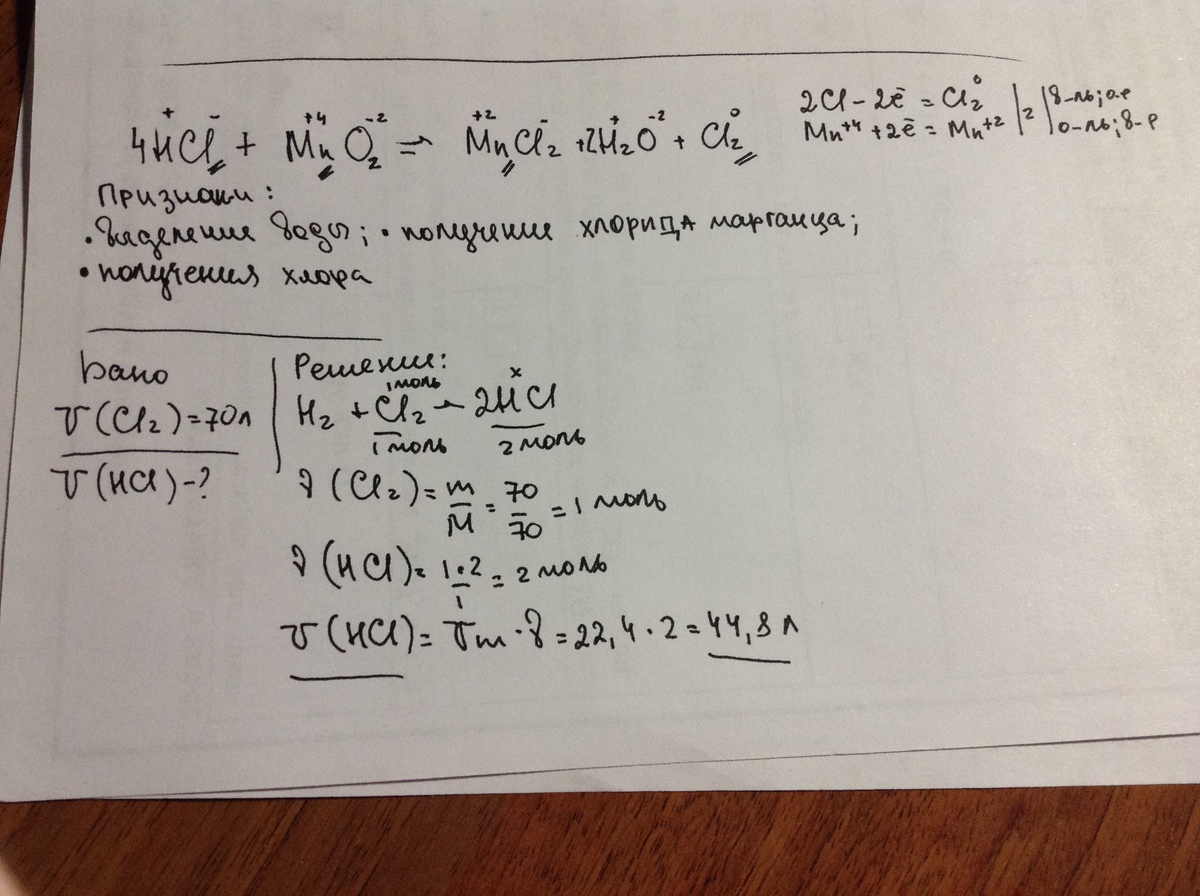 4HCl + MnO₂ → MnCl₂ + 2H₂O + Cl₂
+ - +4 -2 +2 - + -2 0
2Cl - 2ē = Cl₂⁰ | 2 | в-ль; о-е
Mn⁺⁴ + 2ē = Mn⁺² | о-ль; в-е
Признаки:
• Выделение воды; • получение хлорида марганца;
• получения хлора
Дано
V(Cl₂) = 70 л
V(HCl) - ?
Решение:
1 моль x
H₂ + Cl₂ → 2HCl
1 моль 2 моль
ν(Cl₂) = m/M = 70/70 = 1 моль
ν(HCl) = 1·2/1 = 2 моль
V(HCl) = Vm · ν = 22,4 · 2 = 44,8 л